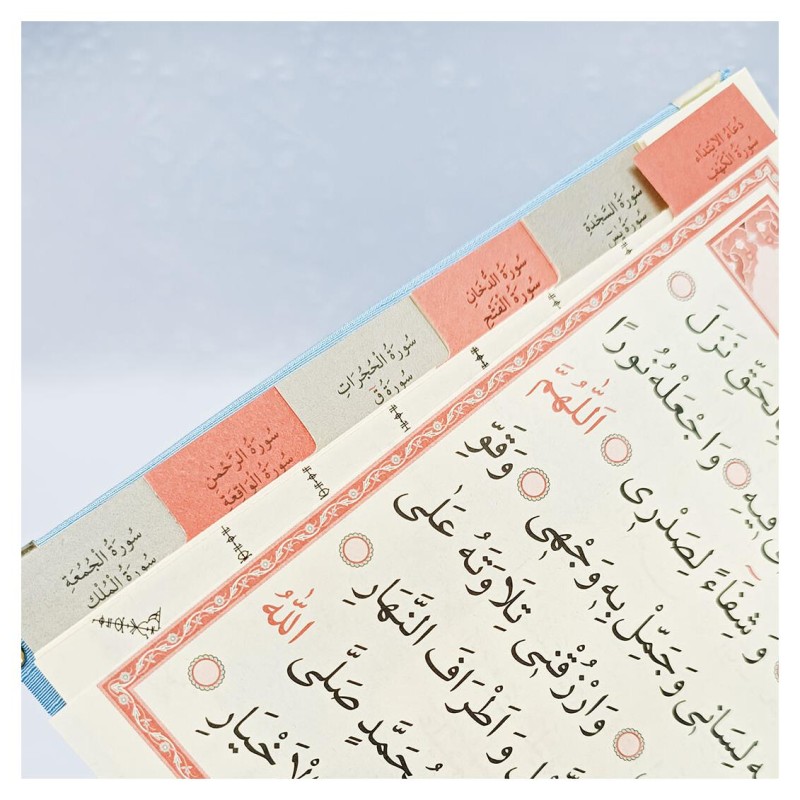 دُعَاءُ الِابْتِدَاءِ
سُورَةُ الْكَهْفِ
سُورَةُ السَّجْدَةِ
سُورَةُ يٰسٓ
سُورَةُ الدُّخَانِ
سُورَةُ الْفَتْحِ
سُورَةُ الْحُجُرَاتِ
سُورَةُ قٓ
سُورَةُ الرَّحْمٰنِ
سُورَةُ الْوَاقِعَةِ
سُورَةُ الْجُمُعَةِ
سُورَةُ الْمُلْكِ
نَزَلَ
وَاجْعَلْهُ نُورًا
اَللّٰهُمَّ
وَشِفَاءً لِصَدْرِى
لِسَانِى وَجَمِّلْ بِهِ وَجْهِى وَقَوِّ
وَارْزُقْنِى تِلَاوَتَهُ عَلٰى
وَاَطْرَافَ النَّهَارِ
مُحَمَّدٍ صَلَّى اللّٰهُ